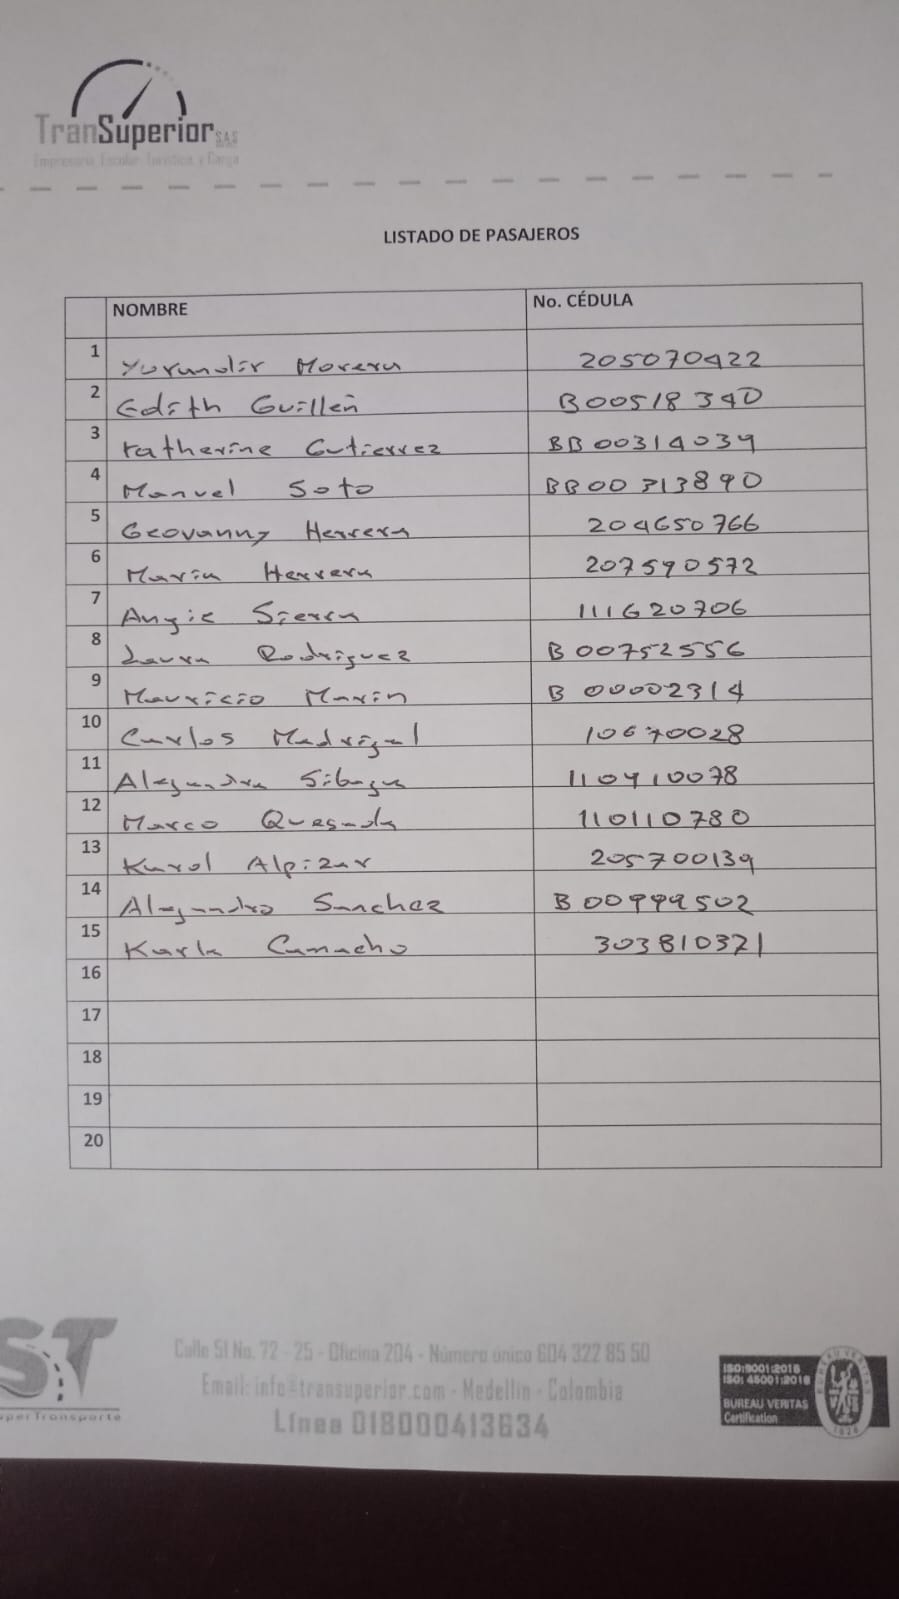 TranSuperior S.A.S
Empresarial, Escolar, Turística, y Carga
LISTADO DE PASAJEROS
NOMBRE No. CÉDULA
1 Yorandir Morera 205070422
2 Edith Guillen B00518340
3 Katherine Gutierrez BB00314039
4 Manuel Soto BB00313890
5 Geovanny Herrera 204650766
6 Maria Herrera 207590572
7 Angie Sierra 111620706
8 Laura Rodriguez B00752556
9 Mauricio Marin B 00002314
10 Carlos Madrigal 10670028
11 Alejandra Sibaja 110410078
12 Marco Quesada 110110780
13 Karol Alpizar 205700139
14 Alejandro Sanchez B00999502
15 Karla Camacho 303810321
16
17
18
19
20
ST
uperTransporte
Calle 51 No. 72 - 25 - Oficina 204 - Número único 604 322 85 50
Email: info@transuperior.com - Medellín - Colombia
Línea 018000413634
ISO:9001:2018
ISO: 45001:2018
BUREAU VERITAS
Certification
1828